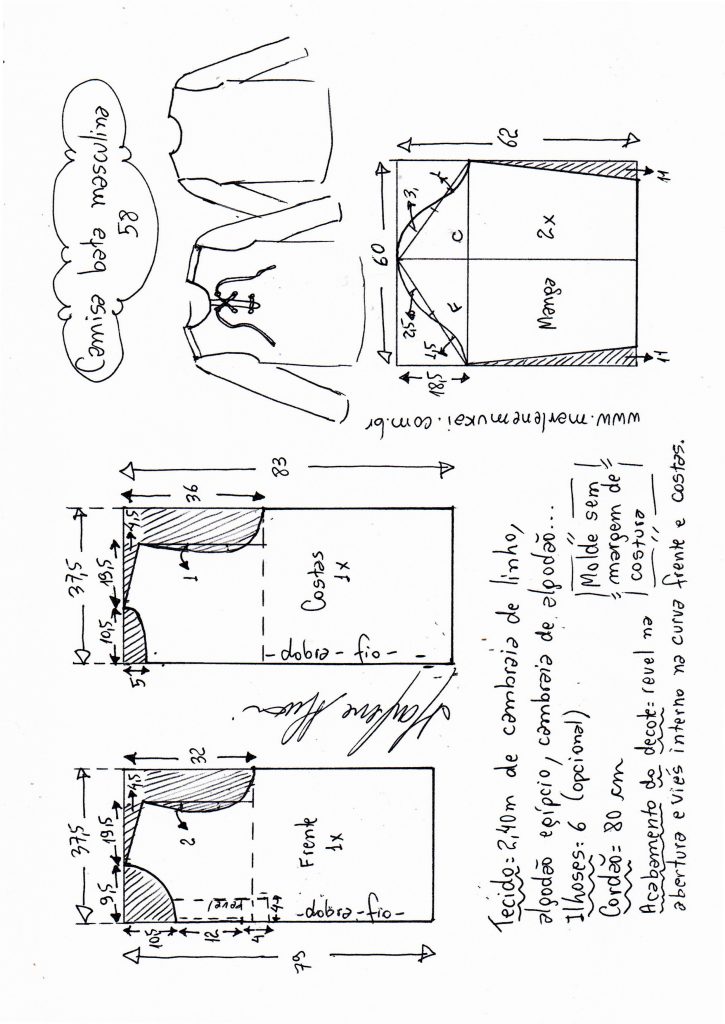 Camisa bata masculina
58
www.marlenemukai.com.br
62
60
3,
1
C
F
2,5
1,5
18,5
2x
Manga
11
11
83
36
37,5
4,5
19,5
10,5
5
1
Costas
1x
dobra-fio
32
37,5
4,5
19,5
9,5
10,5
12
4
4
2
revel
Frente
1x
dobra-fio
79
Tecido: 2,40m de cambraia de linho,
algodão egípcio, cambraia de algodão...
Ilhoses: 6 (opcional)
Cordão: 80 cm
Acabamento do decote: revel na
abertura e viés interno na curva frente e costas.
Molde sem
margem de
costura